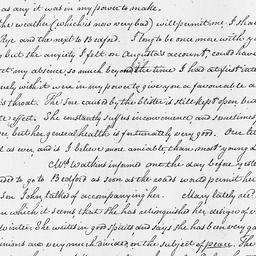 as any it was in my power to make.
the weather (which is now very bad) will permit me, I shou
Rye and the next to Bedford. I long to be once more with y
but the anxiety I felt on Augusta's account, could have
ct my absence so much beyond the time I had
rely wish it were in my power to give you a favourable a
's throat. The sore caused by the blister is still kept open but
te effect. She constantly suffers inconvenience and sometimes,
er, but her general health is fortunately very good. Our litt
d as ever, and is I believe more amiable, than most young
Mrs Watkins informed me the day before yeste
ed to go to Bedford as soon as the roads would permit her
son John talked of accompanying her. Mary lately
m which it seems that she has relinquished her design of
Winter. She writes in good spirits and says she has been very ga
inions are very much divided on the subject of peace. The